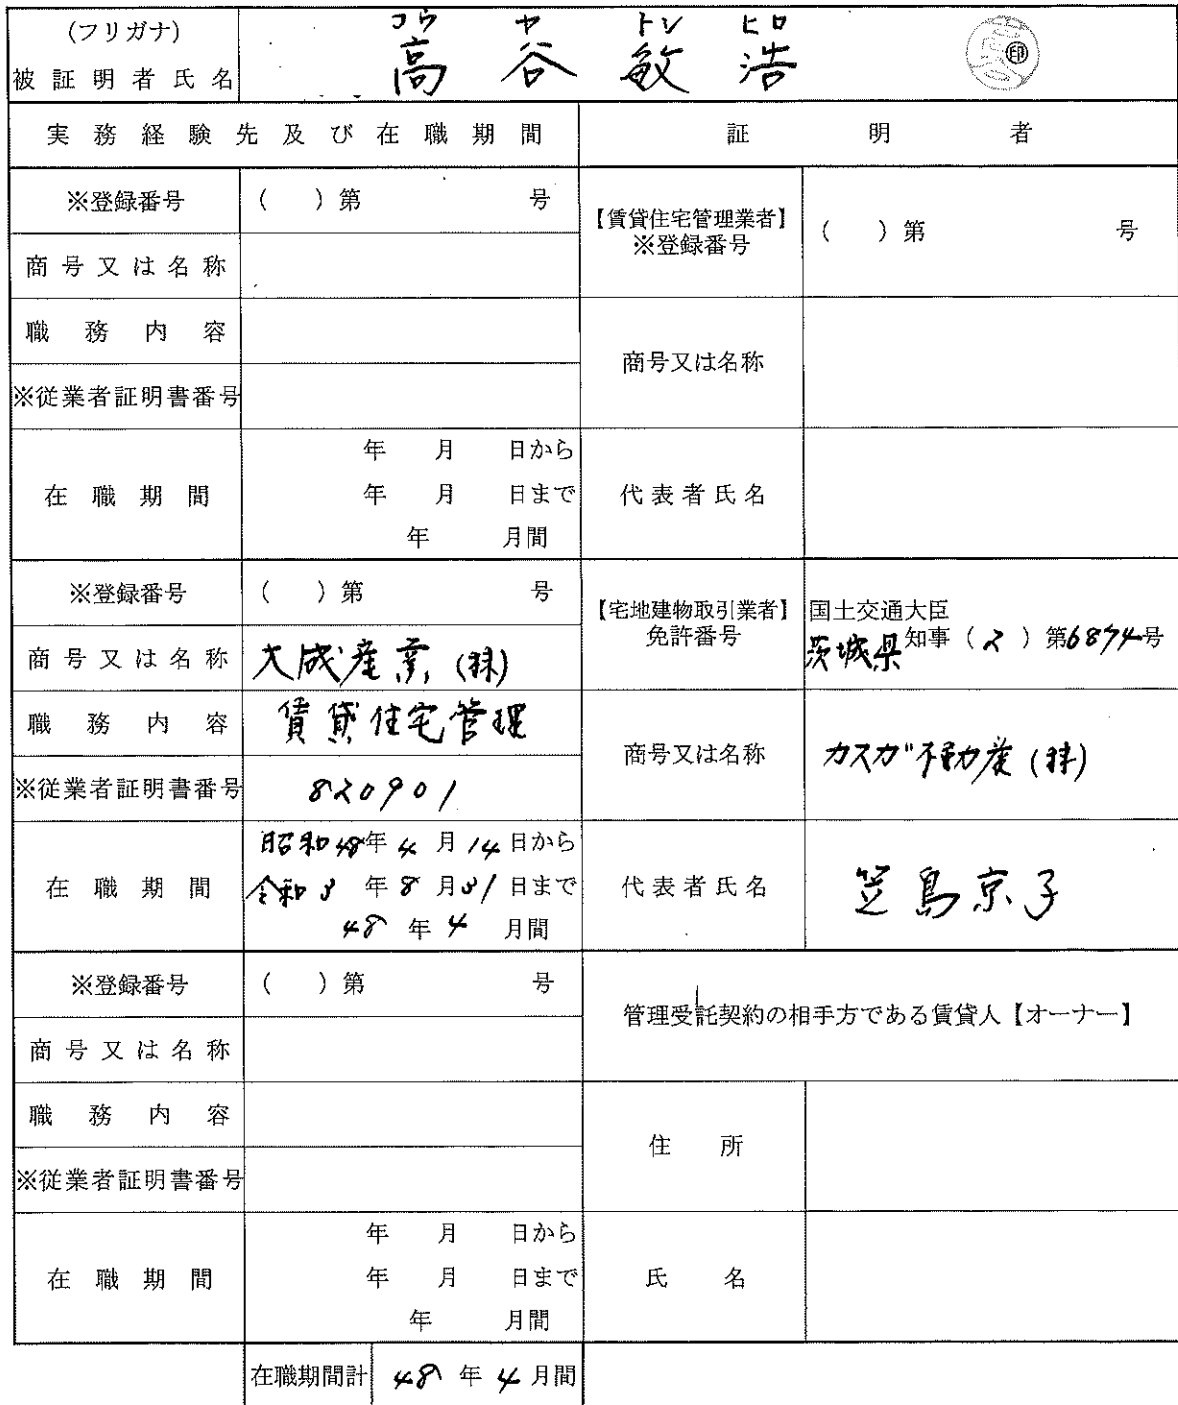 (フリガナ) コウ ヤ トシ ヒロ
被証明者氏名 高谷敏浩 印
実務経験先及び在職期間 証明者
※登録番号 ( )第 号
【賃貸住宅管理業者】
※登録番号 ( )第 号
商号又は名称
職務内容
商号又は名称
※従業者証明書番号
在職期間 年 月 日から
年 月 日まで
年 月間
代表者氏名
※登録番号 ( )第 号
【宅地建物取引業者】 国土交通大臣
免許番号 茨城県知事(2)第6874号
商号又は名称 大成産業(株)
職務内容 賃貸住宅管理
商号又は名称 カスガ不動産(株)
※従業者証明書番号 820901
在職期間 昭和48年4月14日から
令和3年8月31日まで
48年4月間
代表者氏名 笠島京子
※登録番号 ( )第 号
管理受託契約の相手方である賃貸人【オーナー】
商号又は名称
職務内容
住所
※従業者証明書番号
在職期間 年 月 日から
年 月 日まで
年 月間
氏名
在職期間計 48年4月間